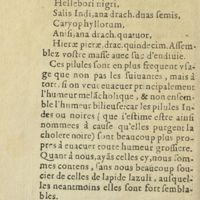 Hellebori nigri,
Salis Indi, ana drach. duas semis,
Caryophyllorum,
Anisi, ana drach. quatuor,
Hieræ picræ, drac. quindecim. Assem-
blez vostre masse auec suc d'endiuie.
Ces pilules sont en plus frequent vsa-
ge que non pas les suiuantes, mais à
tort: si on veut euacuer principalement
l'humeur melācholique, & non ensem-
ble l'humeur bilieuse: car les pilules In-
des ou noires (que i'estime estre ainsi
nommees à cause qu'elles purgent la
cholere noire) sont beaucoup plus pro-
pres à euacuer toute humeur grossiere.
Quant à nous, ayās celles cy, nous som-
mes contens, sans nous beaucoup sou-
cier de celles de lapide lazuli, ausquel-
les neantmoins elles sont fort sembla-
bles.